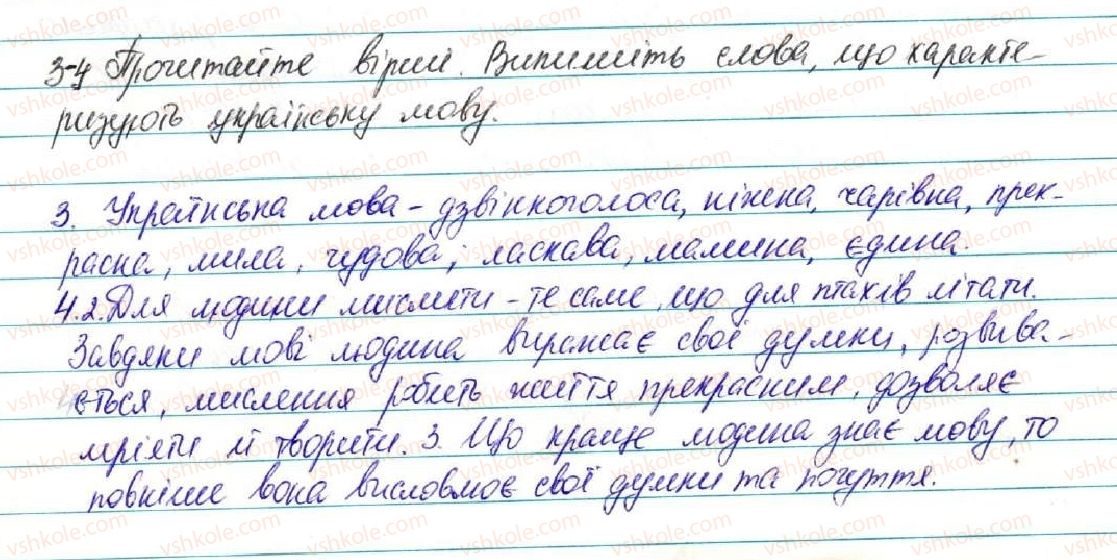 3-4 Прочитайте вірші. Випишіть слова, що характе-
ризують українську мову.
3. Українська мова - дзвінкоголоса, ніжна, чарівна, прек-
расна, мила, чудова, ласкава, мамина, єдина.
4.2. Для людини мислити - те саме, що для птахів літати.
Завдяки мові людина виражає свої думки, розвива-
ється, мислення робить життя прекрасним, дозволяє
мріяти й творити. 3. Що краще людина знає мову, то
повніше вона висловлює свої думки та почуття.